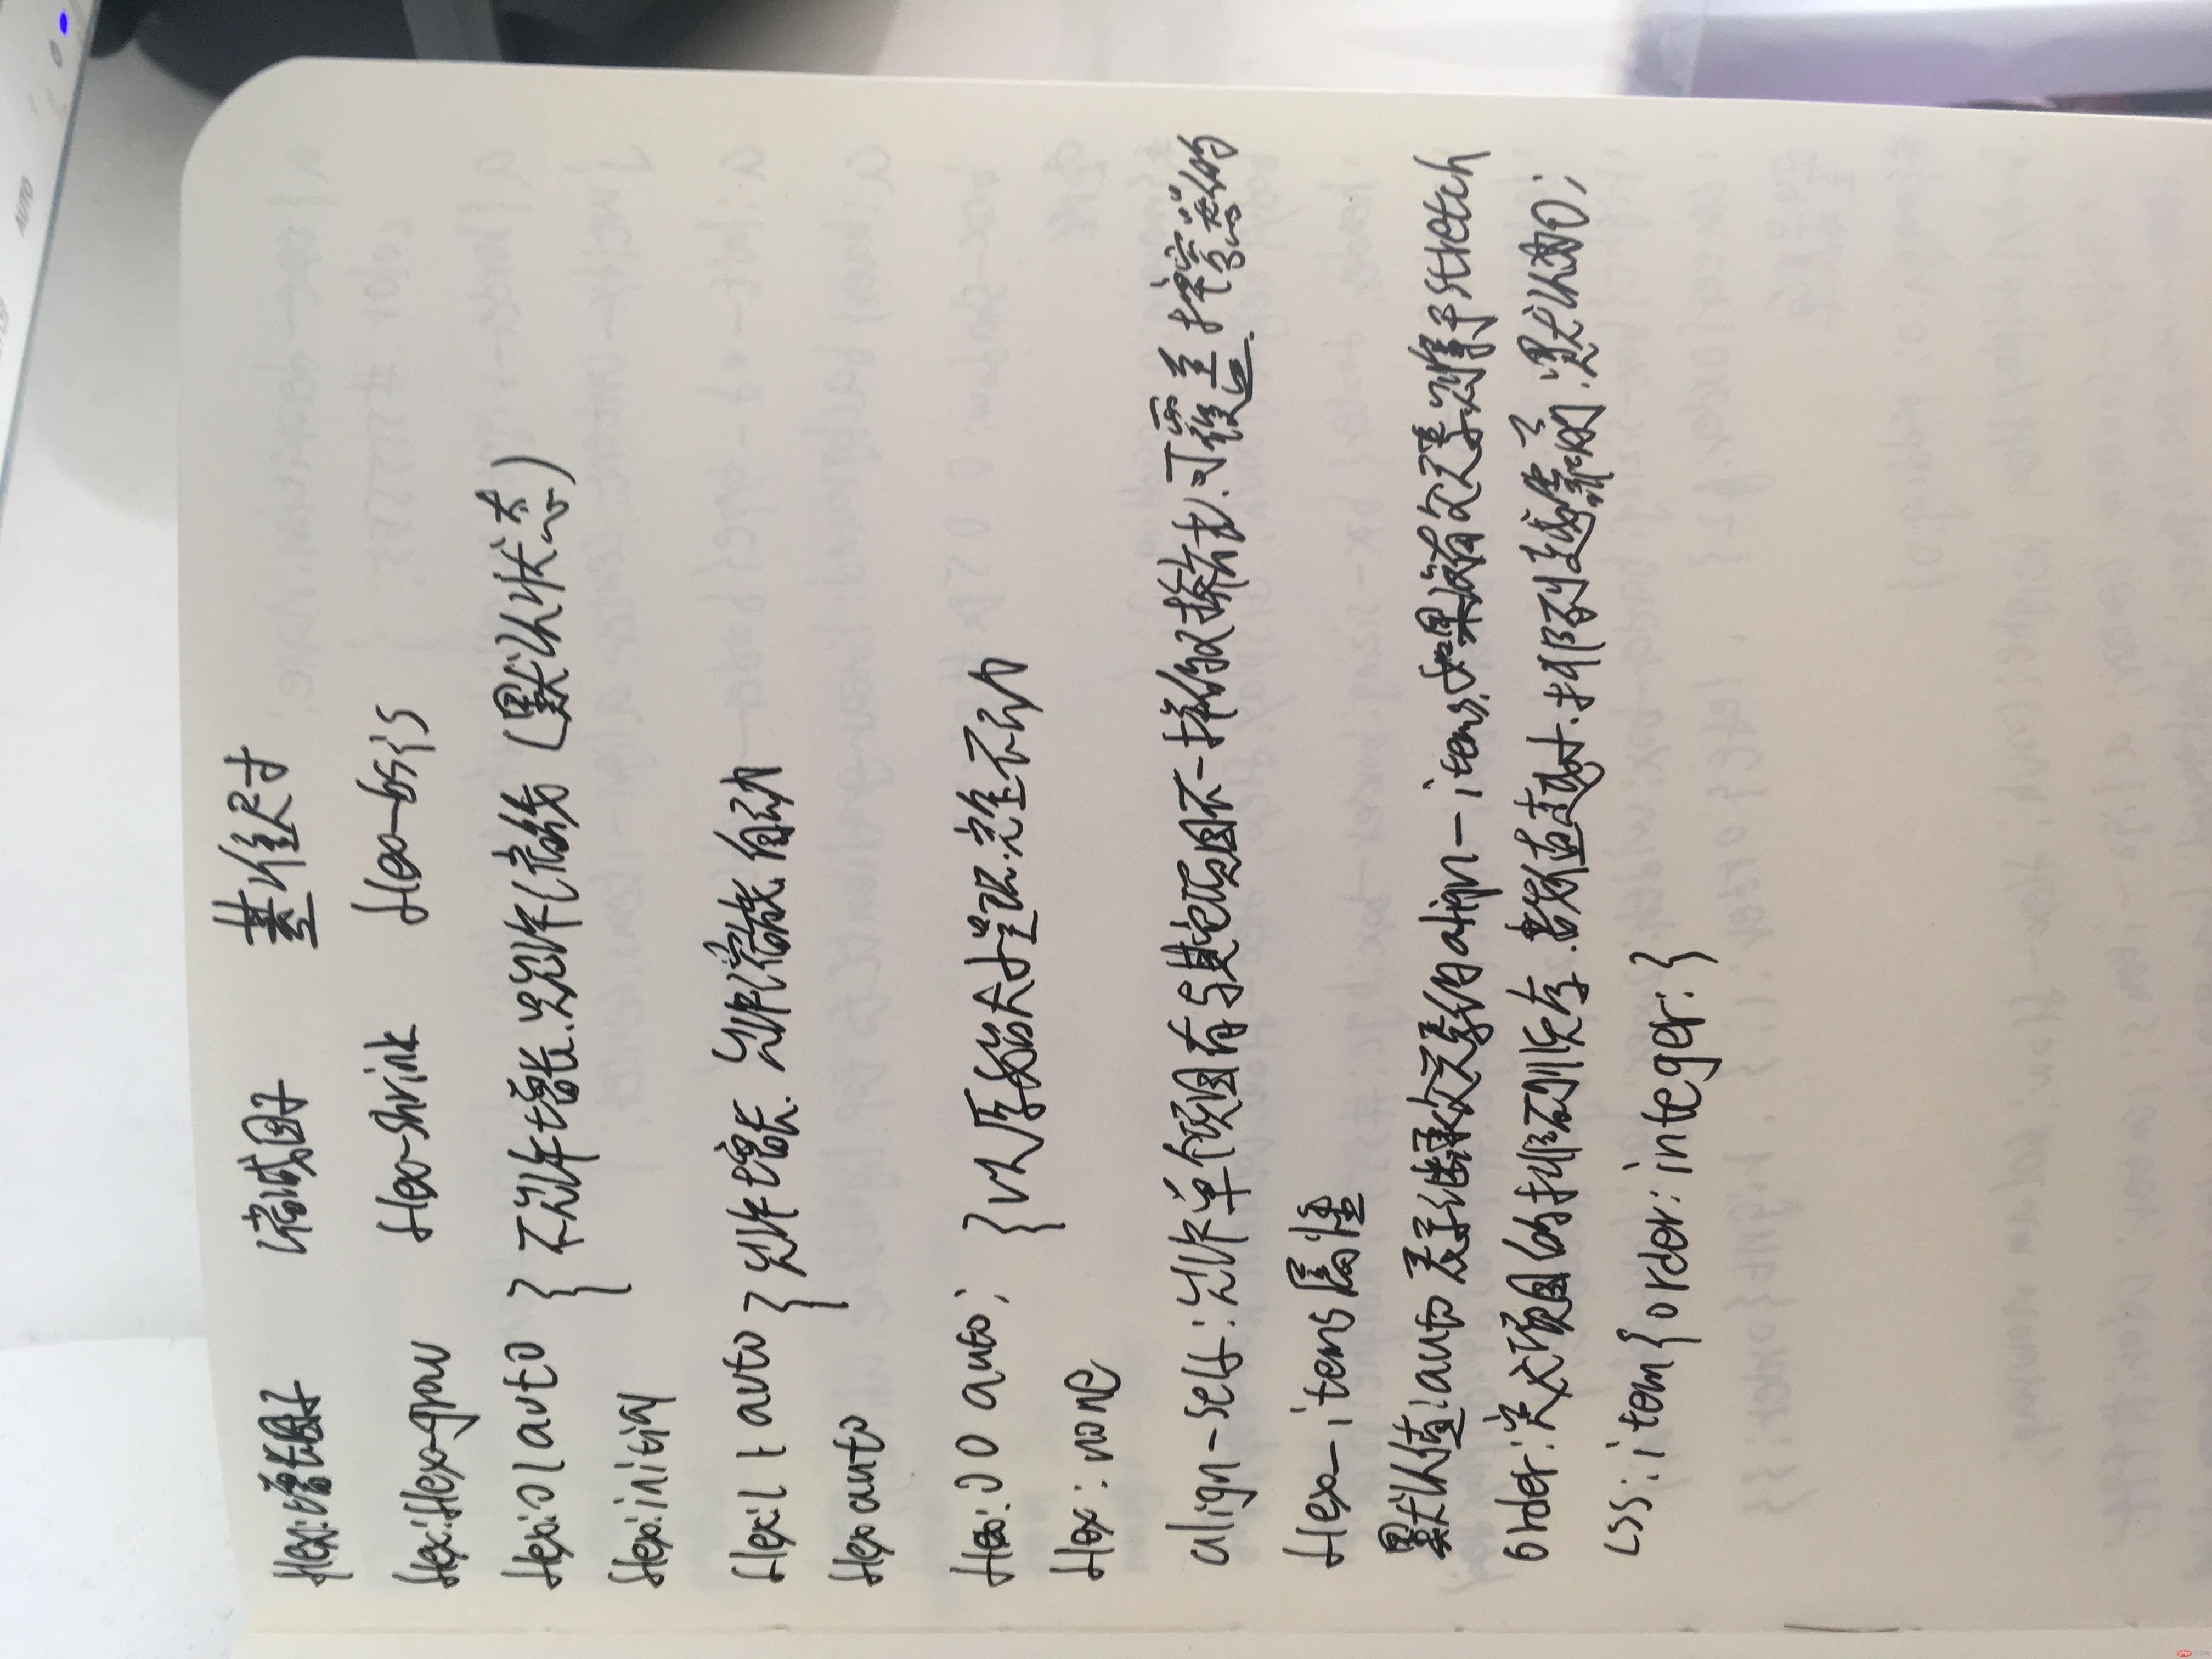 flex:增长因子 缩减因子 基准尺寸
flex:flex-grow flex-shrink flex-bsis
flex:0 1 auto } 不允许增长.允许缩放 (默认状态)
flex:initial
flex:1 1 auto } 允许增长. 允许缩放.自动
flex auto
flex:0 0 auto; } 以原始大小呈现.完全不动
flex:none
align-self:允许单个项目有与其它项目不一样的对齐方式.可覆盖
flex-items属性
默认值:auto 表示继承父元素的align-items.如果没有父元素则等于stretch
order:定义项目的排列顺序.数值越小.排列越靠前.默认为0;
css:item{order:integer:}